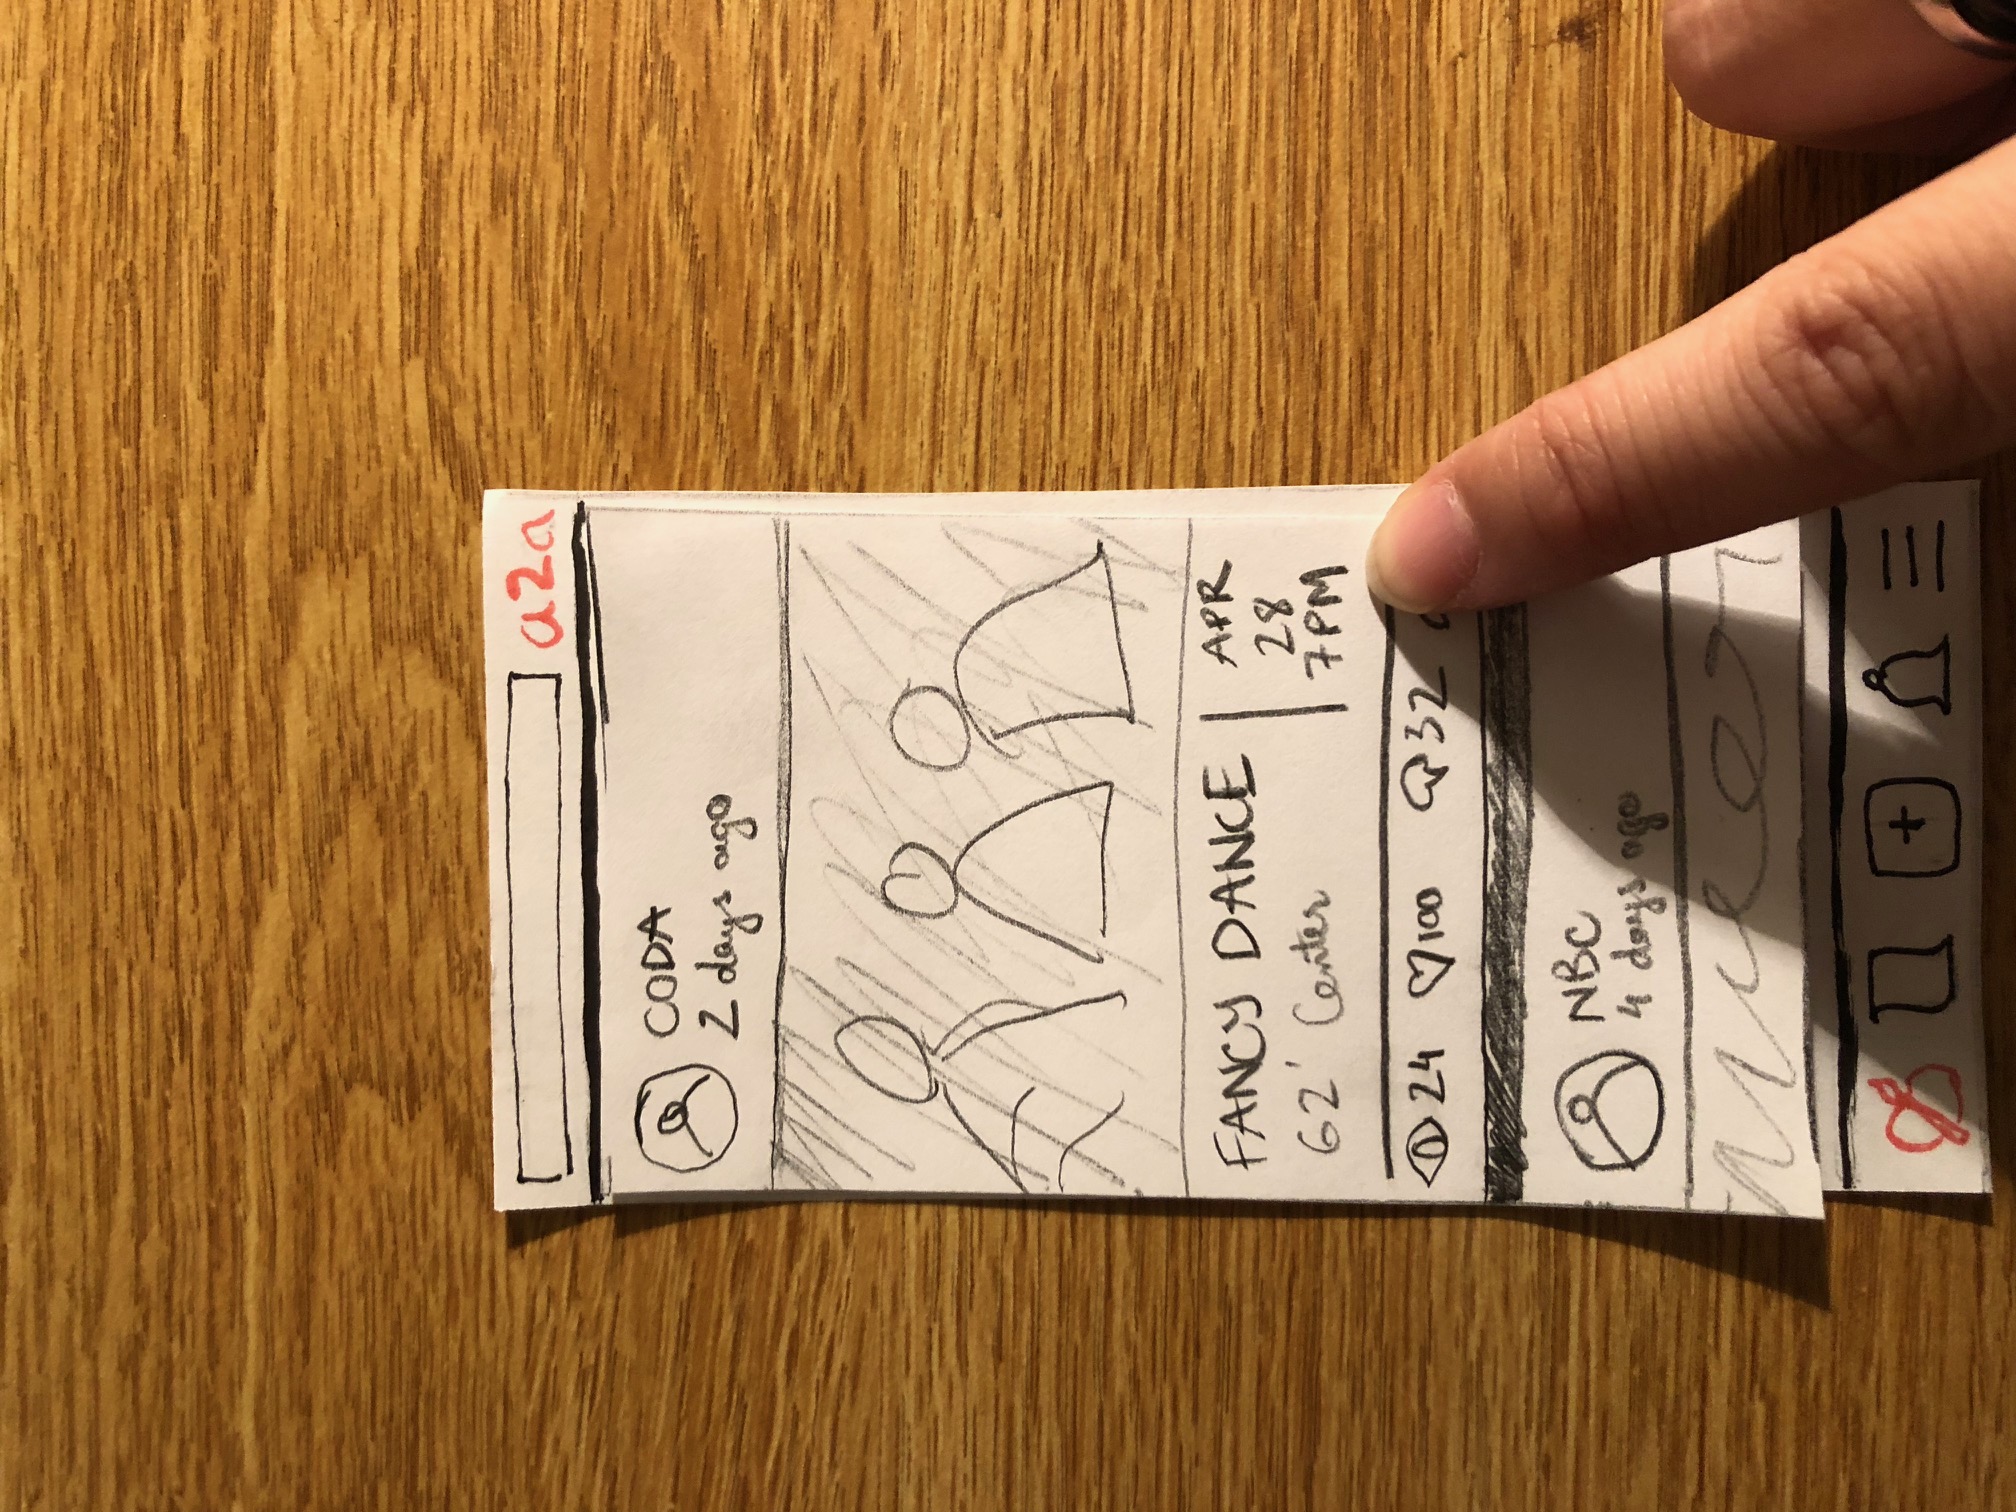 a2a
CODA
2 days ago
FANCY DANCE
62' Center
APR
28
7PM
24 100 32
NBC
4 days ago
+